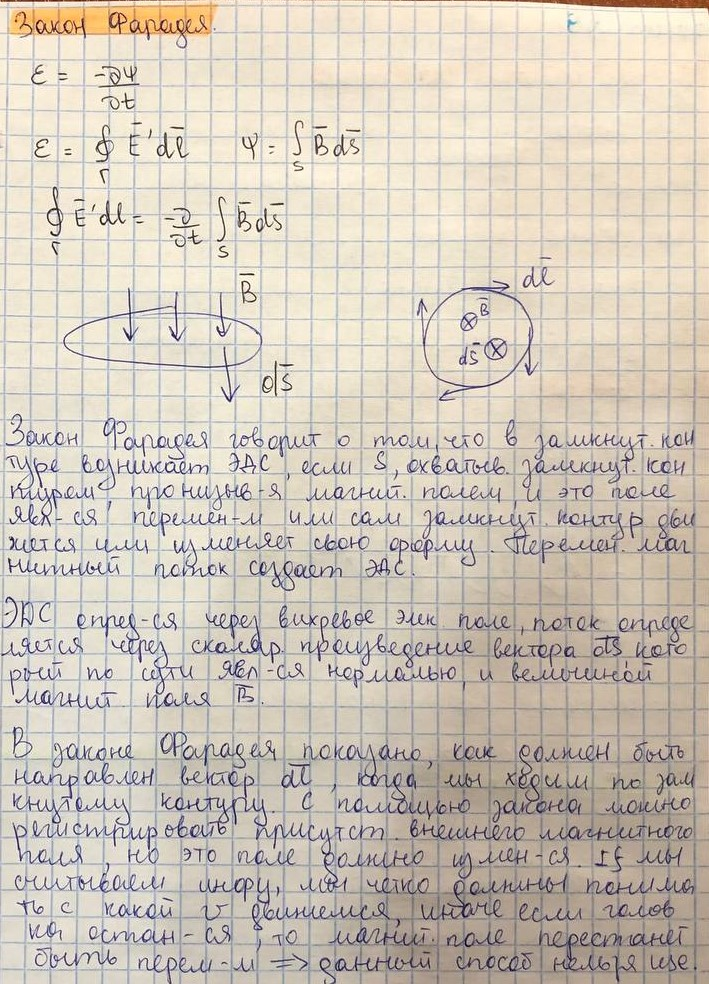 Закон Фарадея.
ε = -∂Ψ/∂t
ε = ∮_Г Ē'dl̄ Ψ = ∫_S B̄ds̄
∮_Г Ē'dl = -∂/∂t ∫_S B̄ds̄
B̄ dl̄
B̄
ds̄
ds̄
Закон Фарадея говорит о том, что в замкнут. кон
туре возникает ЭДС, если S, охватыв. замкнут. кон
туром, пронизыв-я магнит. полем, и это поле
явл-ся перемен-м или сам замкнут. контур дви
жется или изменяет свою форму. Перемен. маг
нитный поток создает ЭДС.
ЭДС опред-ся через вихревое элек поле, поток опреде
ляется через скаляр. произведение вектора ds̄ кото
рый по сути явл-ся нормалью, и величиной
магнит. поля B̄.
В законе Фарадея показано, как должен быть
направлен вектор dl̄, когда мы ходим по зам
кнутому контуру. С помощью закона можно
регистрировать присутст. внешнего магнитного
поля, но это поле должно измен-ся. If мы
считываем инфру, мы четко должны понима
ть с какой v движемся, иначе если голов
ка остан-ся, то магнит. поле перестанет
быть перем-м => данный способ нельзя исп.